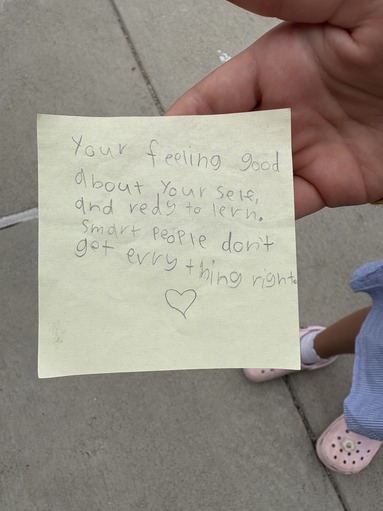 Your feeling good
about your sele,
and redy to lern.
Smart people don't
get errything right.